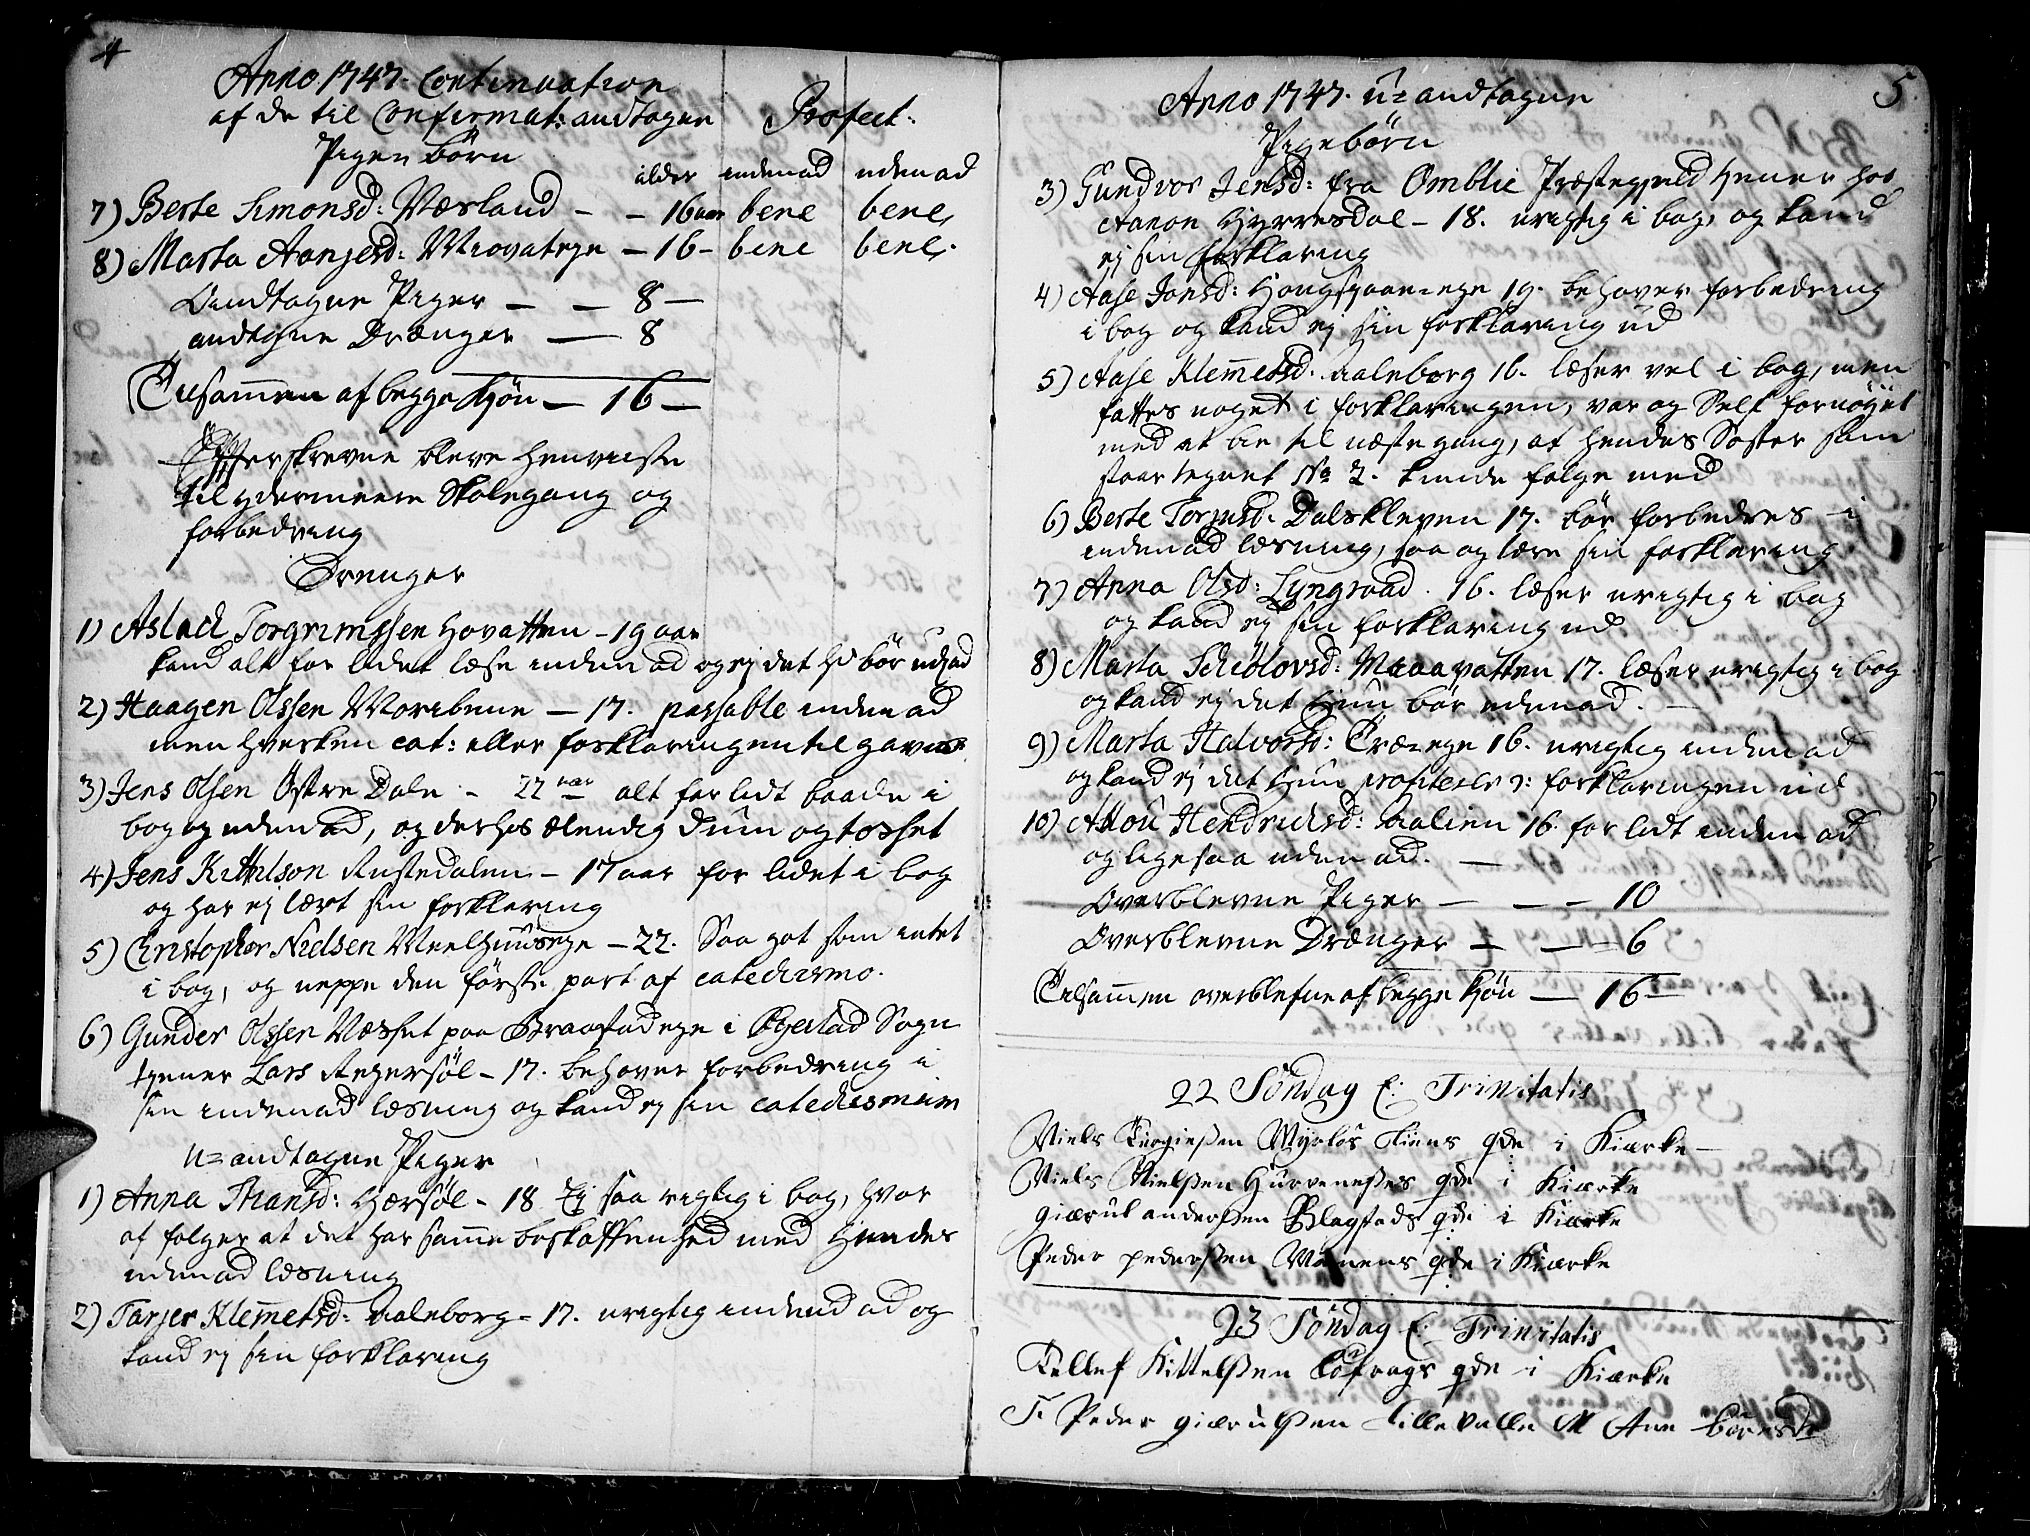 4
Anno 1747. Continuation
af de til Confirmat: andtagne
Pigen börn
Profect:
alder indenad udenad
7) Berte Simonsd: Væsland - - 16 aar bene bene,
8) Marta Aanjersd: - 16 - bene bene.
Andtagne Piger - - 8 -
andtagne Drænger - 8
Tilsammen af begge Kjön - 16 -
Efterskrevne bleve henviiste
til ydermeere Skolegang og
forbedring
Drenger
1) Aslach Torgrimssen Hovatten - 19 aar
kand alt for lidet læse inden ad og ej det hd bör udad
2) Haagen Olssen - 17. passable inden ad
men hverken cat: eller forklaringen til gavns
3) Jens Olsen Östre Dale - 22 aar alt for lidt baade i
bog og uden ad, og derhos Elendig dum og tosset
4) Jens Kittilson Rustedalen - 17 aar for lidet i bog
og har ej lært sin forklaring
5) Christopher Nielsen - 22. Saa got som intet
i bog, og neppe den förste part af catechismo.
6) Gunder Olssen Væsset paa ege i Sogn
tjener Lars - 17. behöver forbedring i
sin indenad læsning og kand ej sin catechismum
U=andtagne Piger
1) Anna Thansd: Hærsöl - 18 Ej saa rigtig i bog, hvor
af fölger at det har samme beskaffenhed med hendes
udenad læsning
2) Tarjer Klemetsd: Aaleborg - 17. urigtig indend ad og
kand ej sin forklaring
5
Anno 1747. U=andtagne
Pigebörn
3) Gundvor Jensd: fra Omblie Præstegjeld tjener hos
Aanon Hyrresdal - 18. urigtig i bog, og kand
ej sin forklaring
4) Aase Jonsd: 19. behøver forbedring
i bog og kand ej sin forklaring ud
5) Aase Klemetsd. Aaleborg 16. læser vel i bog, men
fattes noget i forklaringen, var og Self fornöyet
med at bie til næste gang, at hendes Söster som
staar tegnet No 2. kunde fölge med
6) Berte Dalskleven 17. bör forbedres i
indenad læsning, saa og lære sin forklaring
7) Anna Olsd: Lyngraad. 16. læser urigtig i bog
og kand ej sin forklaring ud
8) Marta 17. læser urigtig i bog
og kand ej det hun bör udenad. -
9) Marta Halvorsd: Træ-ege 16. urigtig inden ad
og kand ej det hun profiterer i forklaringen ud
10) Hendrichsd: Aalien 16. for lidt inden ad
og ligesaa uden ad. -
Overblevne Piger - - - 10
Overblevne Drænger - - - 6
Tilsammen overblefne af begge Kjön - 16 -
22 Söndag E: Trinitatis
Niels qde i Kiærke -
Niels Nielssen qde i Kiærke
Giærul anderssen Blagstads qde i Kiærke
Peder pederssen qde i Kiærke
23 Söndag E: Trinitatis
Tellef Kittelssen qde i Kiærke
T. Peder giærulssen Lillevalle M Ane